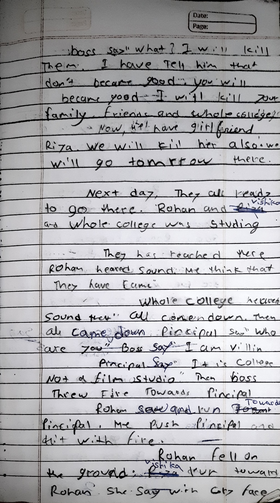 Date:
Page:
boss say "what? I will kill
Them. I have Tell him that
don't became good. you will
became good I will kill your
family, friends and whole college.
Now, he have girlfriend
Riza we will kill her also we
will go tomorrow there.
Next day. They all ready
to go there. Rohan and vishika
and whole college was studing
They has reached there
Rohan heared sound. He think that
They have came
whole college heared
sound that "all come down. Then
all came down Pincipal say "who
are you" Boss say "I am villin
Principal say "It is college
Not a film studio" Then boss
Threw Fire Towards Pincipal
Rohan saw and run Towards
Pincipal. He push Pincipal and
Hit with fire.
Rohan fell on
the ground. vishika run toward
Rohan. She say with cry face